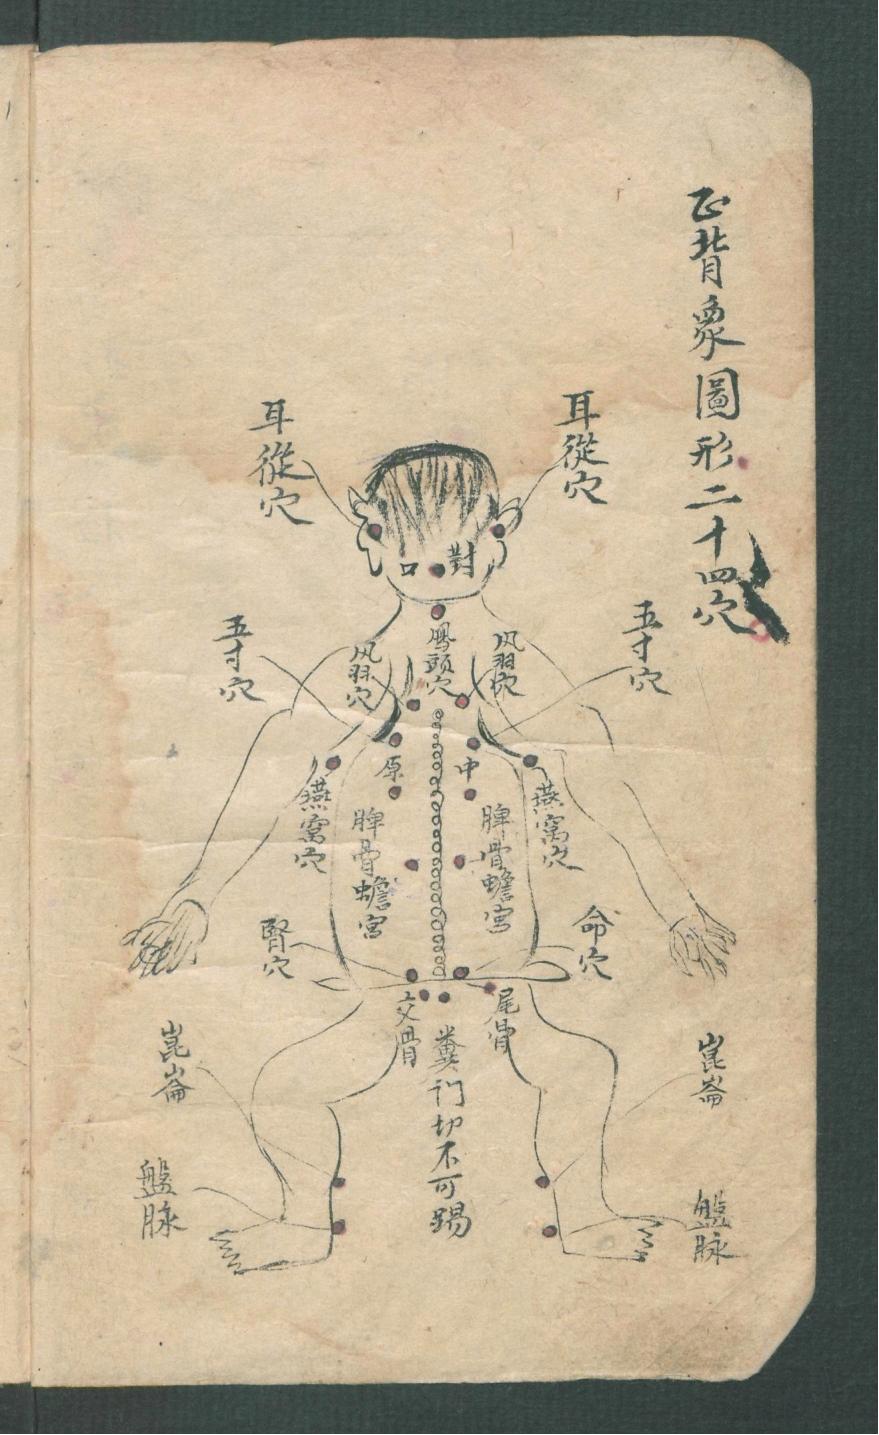 正背象圖形二十四穴
耳從穴
耳從穴
對口
鳳頭穴
风羽穴
风羽穴
五寸穴
五寸穴
中
原
燕窩穴
燕窩穴
脾骨蟾宮
脾骨蟾宮
命穴
腎穴
尾骨
交骨
糞门切不可踢
崑崙
崑崙
盤脉
盤脉